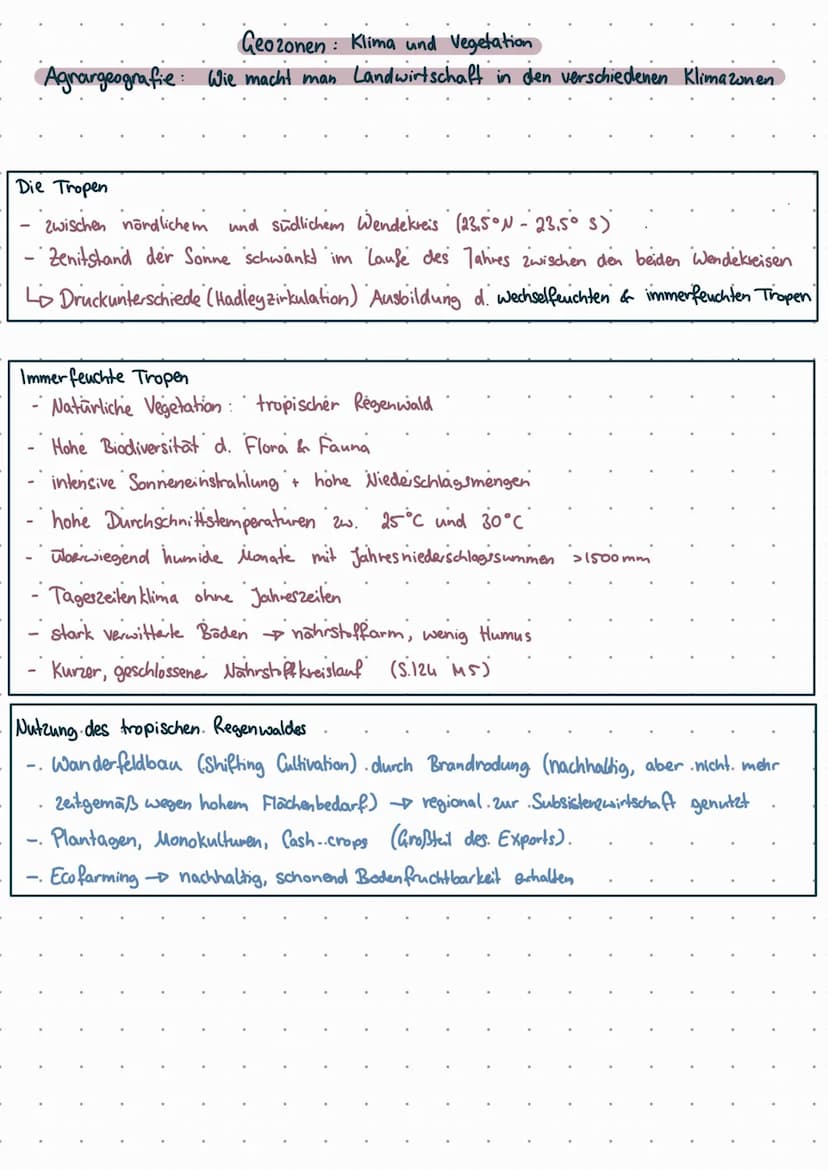 Geozonen: Klima und Vegetation
Agrargeografie: Wie macht man Landwirtschaft in den verschiedenen Klimazonen
Die Tropen
- zwischen nördlichem und südlichem Wendekreis (23,5°N - 23,5° S)
- Zenitstand der Sonne schwankt im Laufe des Jahres zwischen den beiden Wendekreisen
↳ Druckunterschiede (Hadleyzirkulation) Ausbildung d. wechselfeuchten & immerfeuchten Tropen
Immerfeuchte Tropen
- Natürliche Vegetation: tropischer Regenwald
- Hohe Biodiversität d. Flora & Fauna
- intensive Sonneneinstrahlung + hohe Niederschlagsmengen
- hohe Durchschnittstemperaturen zw. 25°C und 30°C
- überwiegend humide Monate mit Jahresniederschlagssummen >1500mm
- Tageszeitenklima ohne Jahreszeiten
- stark verwitterte Böden → nährstoffarm, wenig Humus
- Kurzer, geschlossener Nährstoffkreislauf (S.124 M5)
Nutzung des tropischen Regenwaldes
- Wanderfeldbau (Shifting Cultivation) durch Brandrodung (nachhaltig, aber nicht mehr
zeitgemäß wegen hohem Flächenbedarf) → regional zur Subsistenzwirtschaft genutzt
- Plantagen, Monokulturen, Cash-crops (Großteil des Exports)
- Ecofarming → nachhaltig, schonend Bodenfruchtbarkeit erhalten